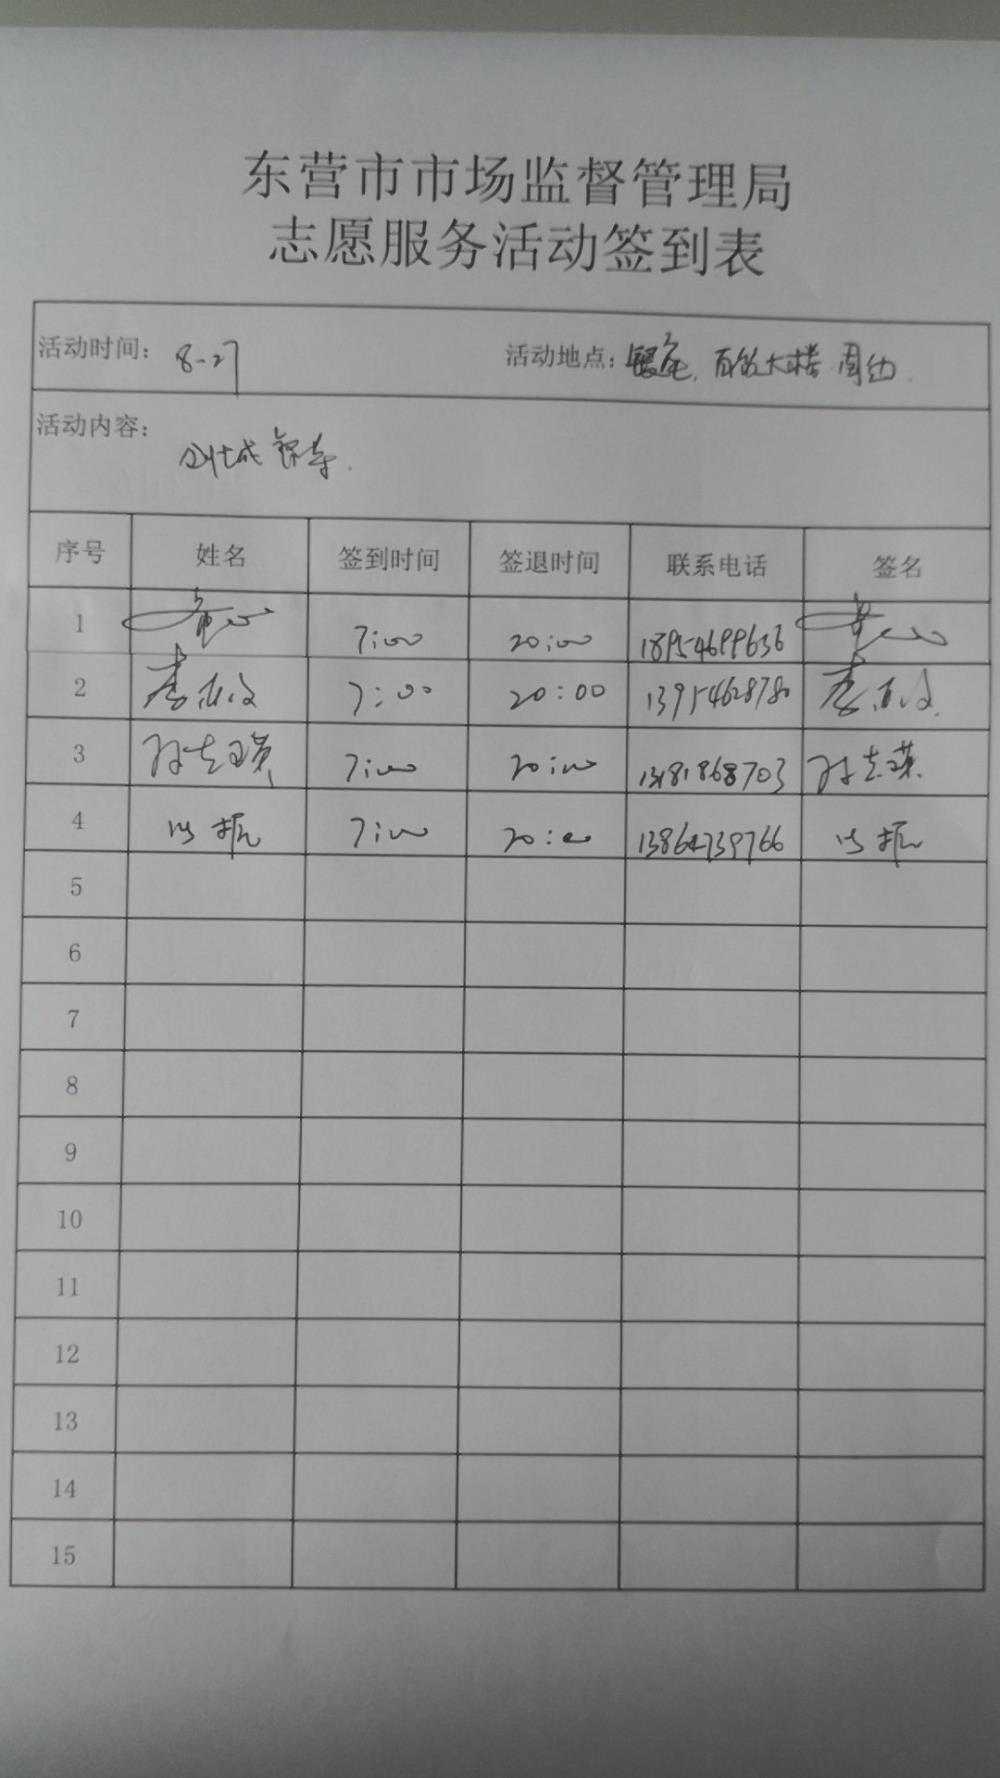 东营市市场监督管理局
志愿服务活动签到表
活动时间: 8-27 活动地点: 百货大楼 周边.
活动内容:
序号 姓名 签到时间 签退时间 联系电话 签名
1 7:00 20:00 18954699636
2 李 7:00 20:00 13954628780 李
3 孙志瑛 7:00 20:00 13181868703 孙志瑛
4 振 7:00 20:00 13864739766 振
5
6
7
8
9
10
11
12
13
14
15